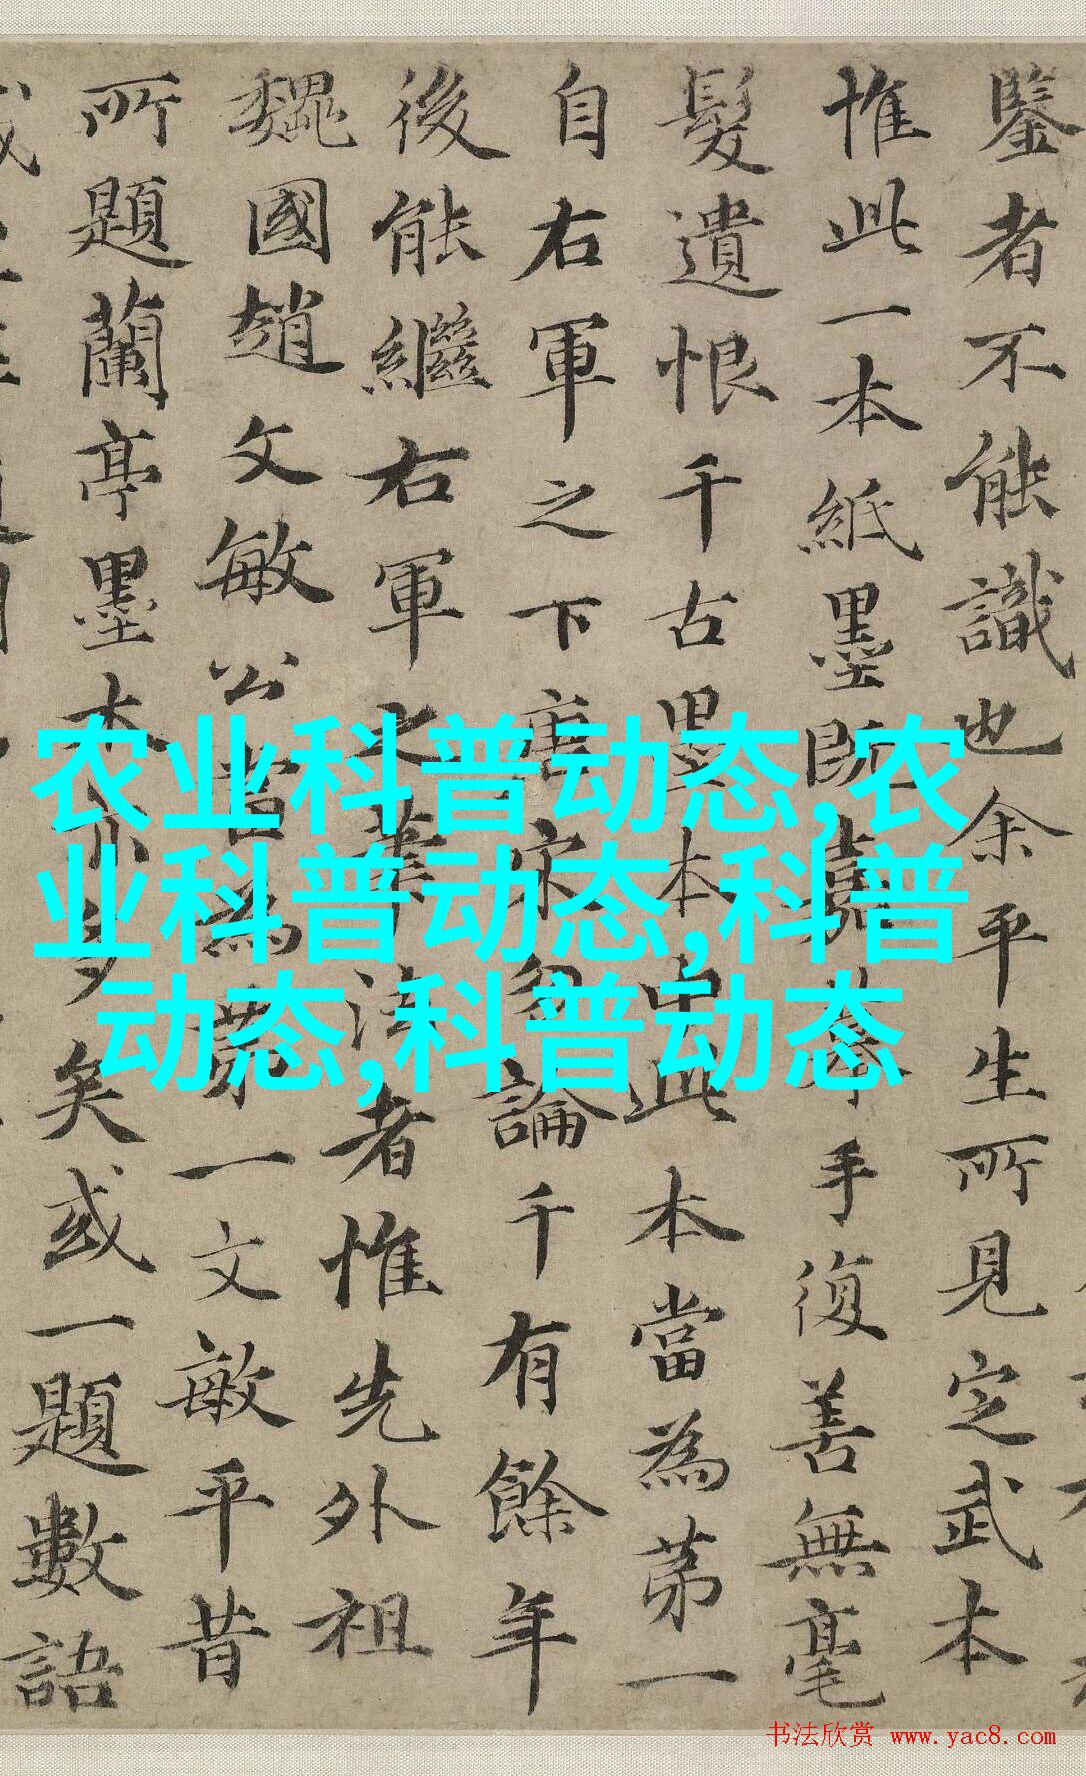 鑒者不能識也余平生所見定武本
惟此一本紙墨既嘉摹手復善無毫
髮遺恨千古墨本中此本當為苐一
自右軍之下唐宋勿論千有餘年
後能繼右軍之筆法者惟先外祖
魏國趙文敏公當為苐一文敏平昔
所題蘭亭墨本亦多矣或一題數語
农业科普动态,农
业科普动态,科普
动态,科普动态
书法欣赏 www.yac8.com